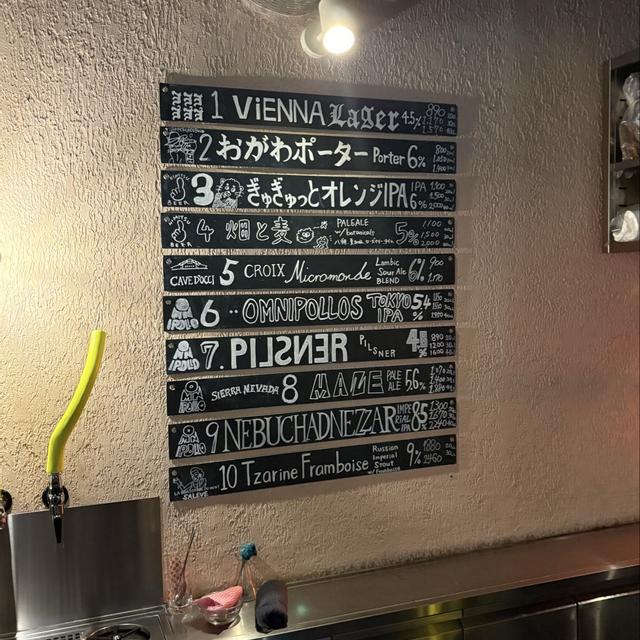 1 ViENNA Lager 4.5% 890
2 おがわポーター Porter 6% 800
3 ぎゅぎゅっとオレンジIPA IPA 6% 1,100 1,500 2,000
4 畑と麦 PALEALE w/botanicals 5% 1100 1,500 2,000
BEER
CAVE DOCCI 5 CROIX Micromonde Lambic Sour Ale BLEND 6% 900
6 OMNIPOLLOS TOKYO IPA 5.4%
7. PILSNER PILSNER 890 1200 1600
SIERRA NEVADA 8 HAZE PALE ALE 5.6%
9 NEBUCHADNEZZAR IMPERIAL IPA 8.5 1300
SALEVE 10 Tzarine Framboise Russian Imperial Stout w/Framboise 9% 1880 2460